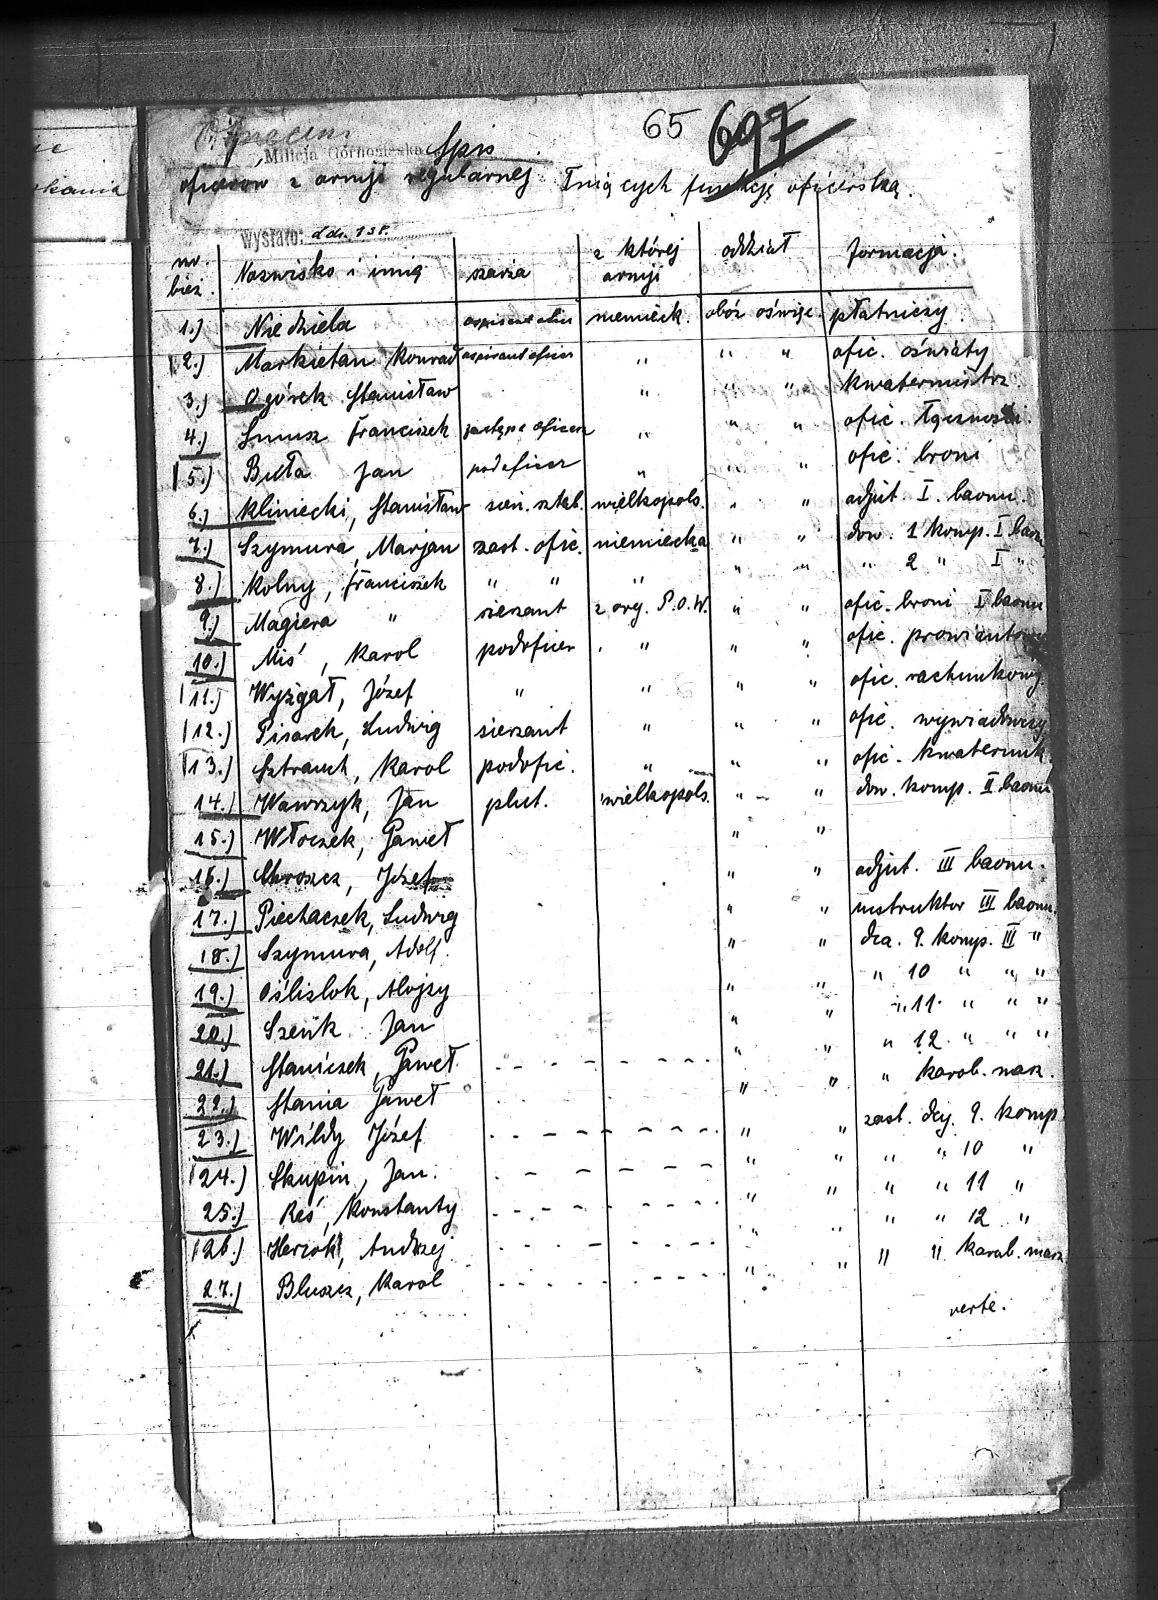 65 697
Milicja Górnośląska
Spis
oficerów z armji regularnej pełniących funkcję oficerską.
wysłało: d.dn. 13P.
nr. bież. Nazwisko i imię szarża z której armji oddział formacja.
1.) Niedziela niemieck. obóz oświęc. płatniczy
2.) Markietan Konrad aspirant oficer " " " ofic. oświaty
3.) Ogórek Stanisław " " " kwatermistrz
4.) Smusz Franciszek zastępc. oficera " " " ofic. łączności.
5.) Buła Jan podoficer " " " ofic. broni
6.) Kliniecki, Stanisław sierż. sztab. wielkopols. " " adjut. I. baonu.
7.) Szymura, Marjan zast. ofic. niemiecka " " dow. 1 komp. I baon
8.) Kolny, Franciszek " " " " " " 2 " I "
9.) Magiera " sierżant z org. P.O.W. " " ofic. broni I baonu
10.) Miś, Karol podoficer " " " ofic. prowiantowy
11.) Wyżgał, Józef " " " " ofic. rachunkowy
12.) Pisarek, Ludwig sierżant " " " ofic. wywiadowczy
13.) Sztrauch, Karol podofic. " " " ofic. kwaterunk.
14.) Wawrzyk, Jan plut. wielkopols. " " dow. komp. II baonu
15.) Włoczek, Paweł " "
16.) Mroszcz, Józef " " adjut. III baonu.
17.) Piechaczek, Ludwig " " instruktor III baonu.
18.) Szymura, Adolf. " " dca. 9. komp. III "
19.) Oślizlok, Alojzy " " " 10 " " "
20.) Szeńk Jan " " " 11. " " "
21.) Staniczek, Paweł. - - - - - - - " " " 12. " " "
22.) Stania Paweł " " " karab. masz.
23.) Wildy Józef - - - - - - - " " zast. dcy. 9. komp
24.) Skupin, Jan. - - - - - " " " " 10 "
25.) Reś, Konstanty - - - - - - - " " " " 11 "
26.) Herzok, Andrzej - - - - - - - " " " " 12 "
27.) Bluszcz, Karol - - - - - - - " " " " karab. masz
verte.